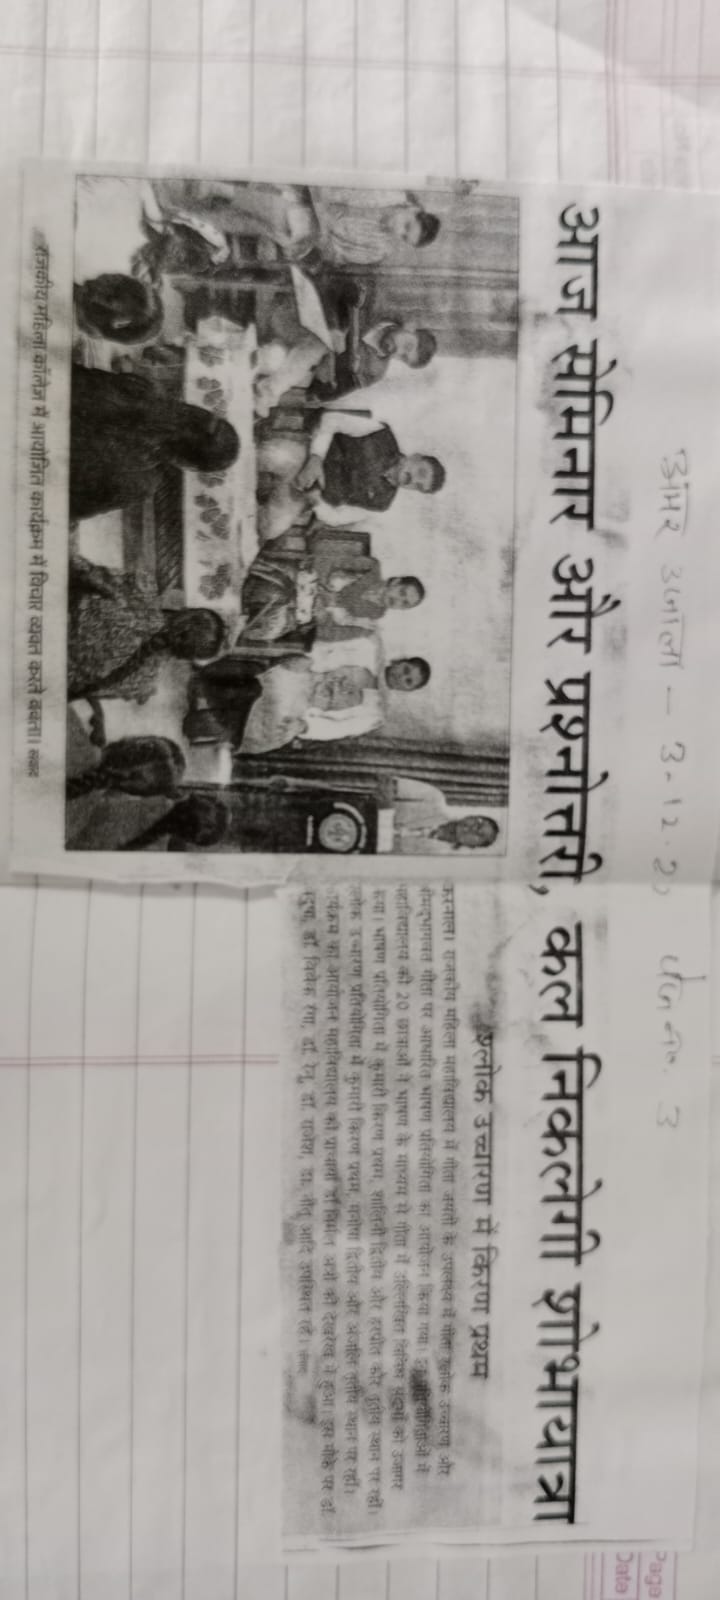 अमर उजाला - 3.12.2 पेज न. 3
आज सेमिनार और प्रश्नोत्तरी, कल निकलेगी शोभायात्रा
राजकीय महिला कॉलेज में आयोजित कार्यक्रम में विचार व्यक्त करते वक्ता। संवाद
श्लोक उच्चारण में किरण प्रथम
करनाल। राजकीय महिला महाविद्यालय में गीता जयंती के उपलक्ष्य में गीता श्लोक उच्चारण और
श्रीमद्भागवत गीता पर आधारित भाषण प्रतियोगिता का आयोजन किया गया। इन प्रतियोगिताओं में
महाविद्यालय की 20 छात्राओं ने भाषण के माध्यम से गीता में उल्लिखित विभिन्न संदर्भों को उजागर
किया। भाषण प्रतियोगिता में कुमारी किरण प्रथम, शालिनी द्वितीय और हरप्रीत कौर तृतीय स्थान पर रहीं।
श्लोक उच्चारण प्रतियोगिता में कुमारी किरण प्रथम, मनीषा द्वितीय और अंजलि तृतीय स्थान पर रहीं।
कार्यक्रम का आयोजन महाविद्यालय की प्राचार्या डॉ की देखरेख में हुआ। इस मौके पर डॉ.
डॉ. डॉ. रेनू, डॉ. राजेश, डा. नीतू आदि उपस्थित रहे। संवाद
Page
Date